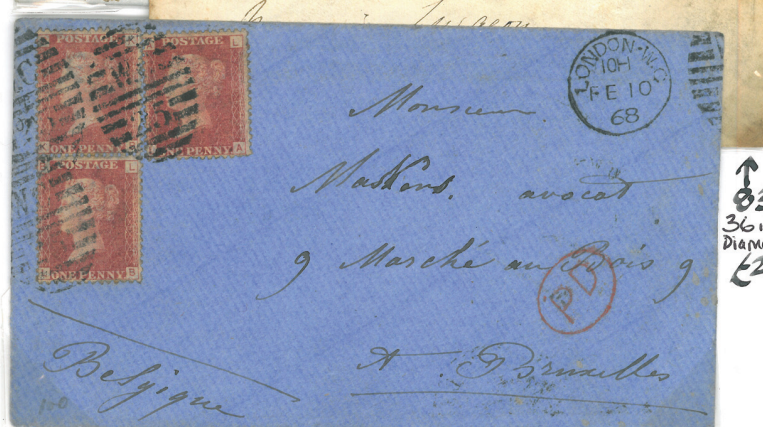 POSTAGE
ONE PENNY
POSTAGE
ONE PENNY
L
A
POSTAGE
ONE PENNY
L
B
LONDON-W.C
10H
FE 10
68
Monsieur
avocat
9 Marché au Bois 9
PD
A Bruxelles
Belgique
100
83
36